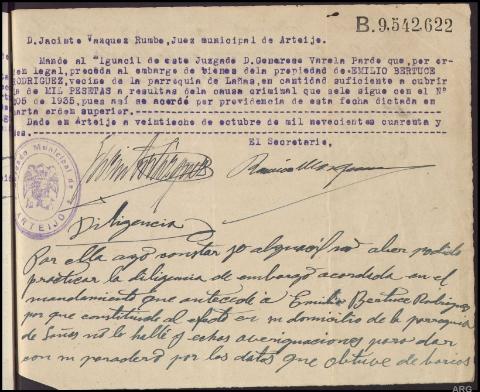 B.9.542.622
D. Jacinto Vazquez Rumbo, Juez municipal de Arteijo.
Mando al "lguacil de este Juzgado D. Generoso Varela Pardo que, por or-
en legal, proceda al embargo de bienes dela propiedad de EMILIO BERTUCE
RODRIGUEZ, vecino de la parroquia de Lañas, en cantidad suficiente a cubrir
de MIL PESETAS a resultas dela causa criminal que sele sigue con el Nº
05 de 1935, pues asi se acordó por providencia de esta fecha dictada en
arta orden superior.
Dado en Arteijo a veintiocho de octubre de mil novecientos cuarenta y
El Secretario,
Juzgado Municipal de
ARTEIJO
Diligencia
Por ella ago constar yo alguacil no aber podido
practicar la diligencia de embargo acordada en el
mandamiento que antecede a Emilio Bertuce Rodriguez
por que constituido al efecto en su domicilio de la parroquia
de Lañas no lo hallé y echas averiguaciones para dar
con su paradero por los datos que obtuve de barios
ARG